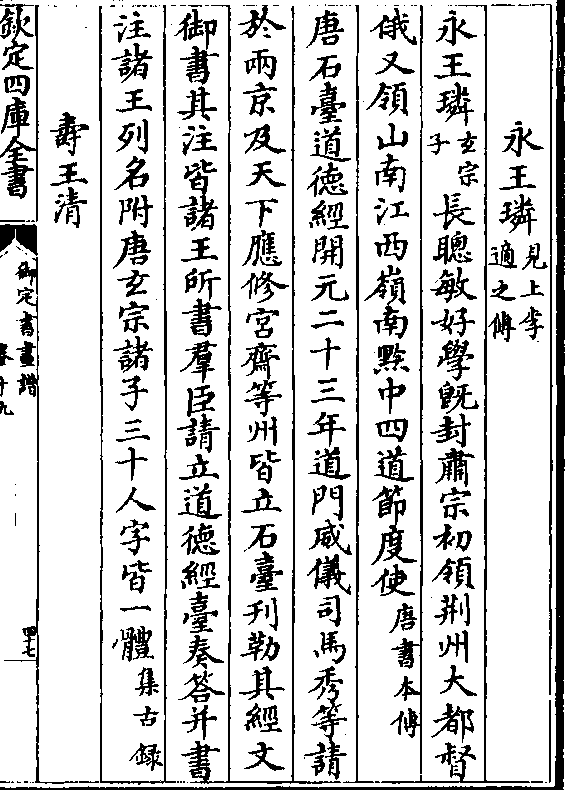 永王璘見上李適之傳
永王璘玄宗子長聰敏好學旣封肅宗初領荆州大都督
俄又領山南江西嶺南黔中四道節度使唐書本傳
唐石臺道德經開元二十三年道門威儀司馬秀等請
於兩京及天下應修宮齋等州皆立石臺刊勒其經文
御書其注皆諸王所書羣臣請立道德經臺奏答并書
注諸王列名附唐玄宗諸子三十人字皆一體集古録
壽王清
欽定四庫全書
御定書畫譜
卷十九
四七